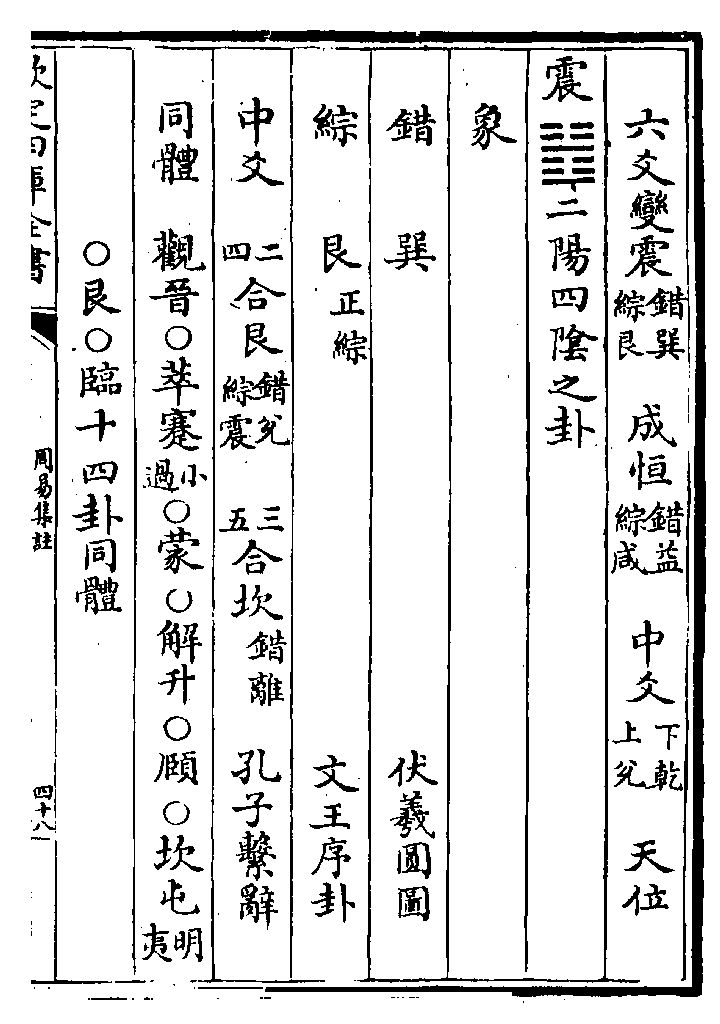 六爻變震錯巽綜艮　成恒錯益綜咸　中爻下乾上兌　天位
震䷲二陽四陰之卦
象
錯　巽　伏羲圓圖
綜　艮正綜　文王序卦
中爻　二四合艮錯兌綜震　三五合坎錯離　孔子繫辭
同體　觀晉○萃蹇小過○蒙○解升○頤○坎屯明夷
○艮○臨十四卦同體
欽定四庫全書
周易集註
四十八